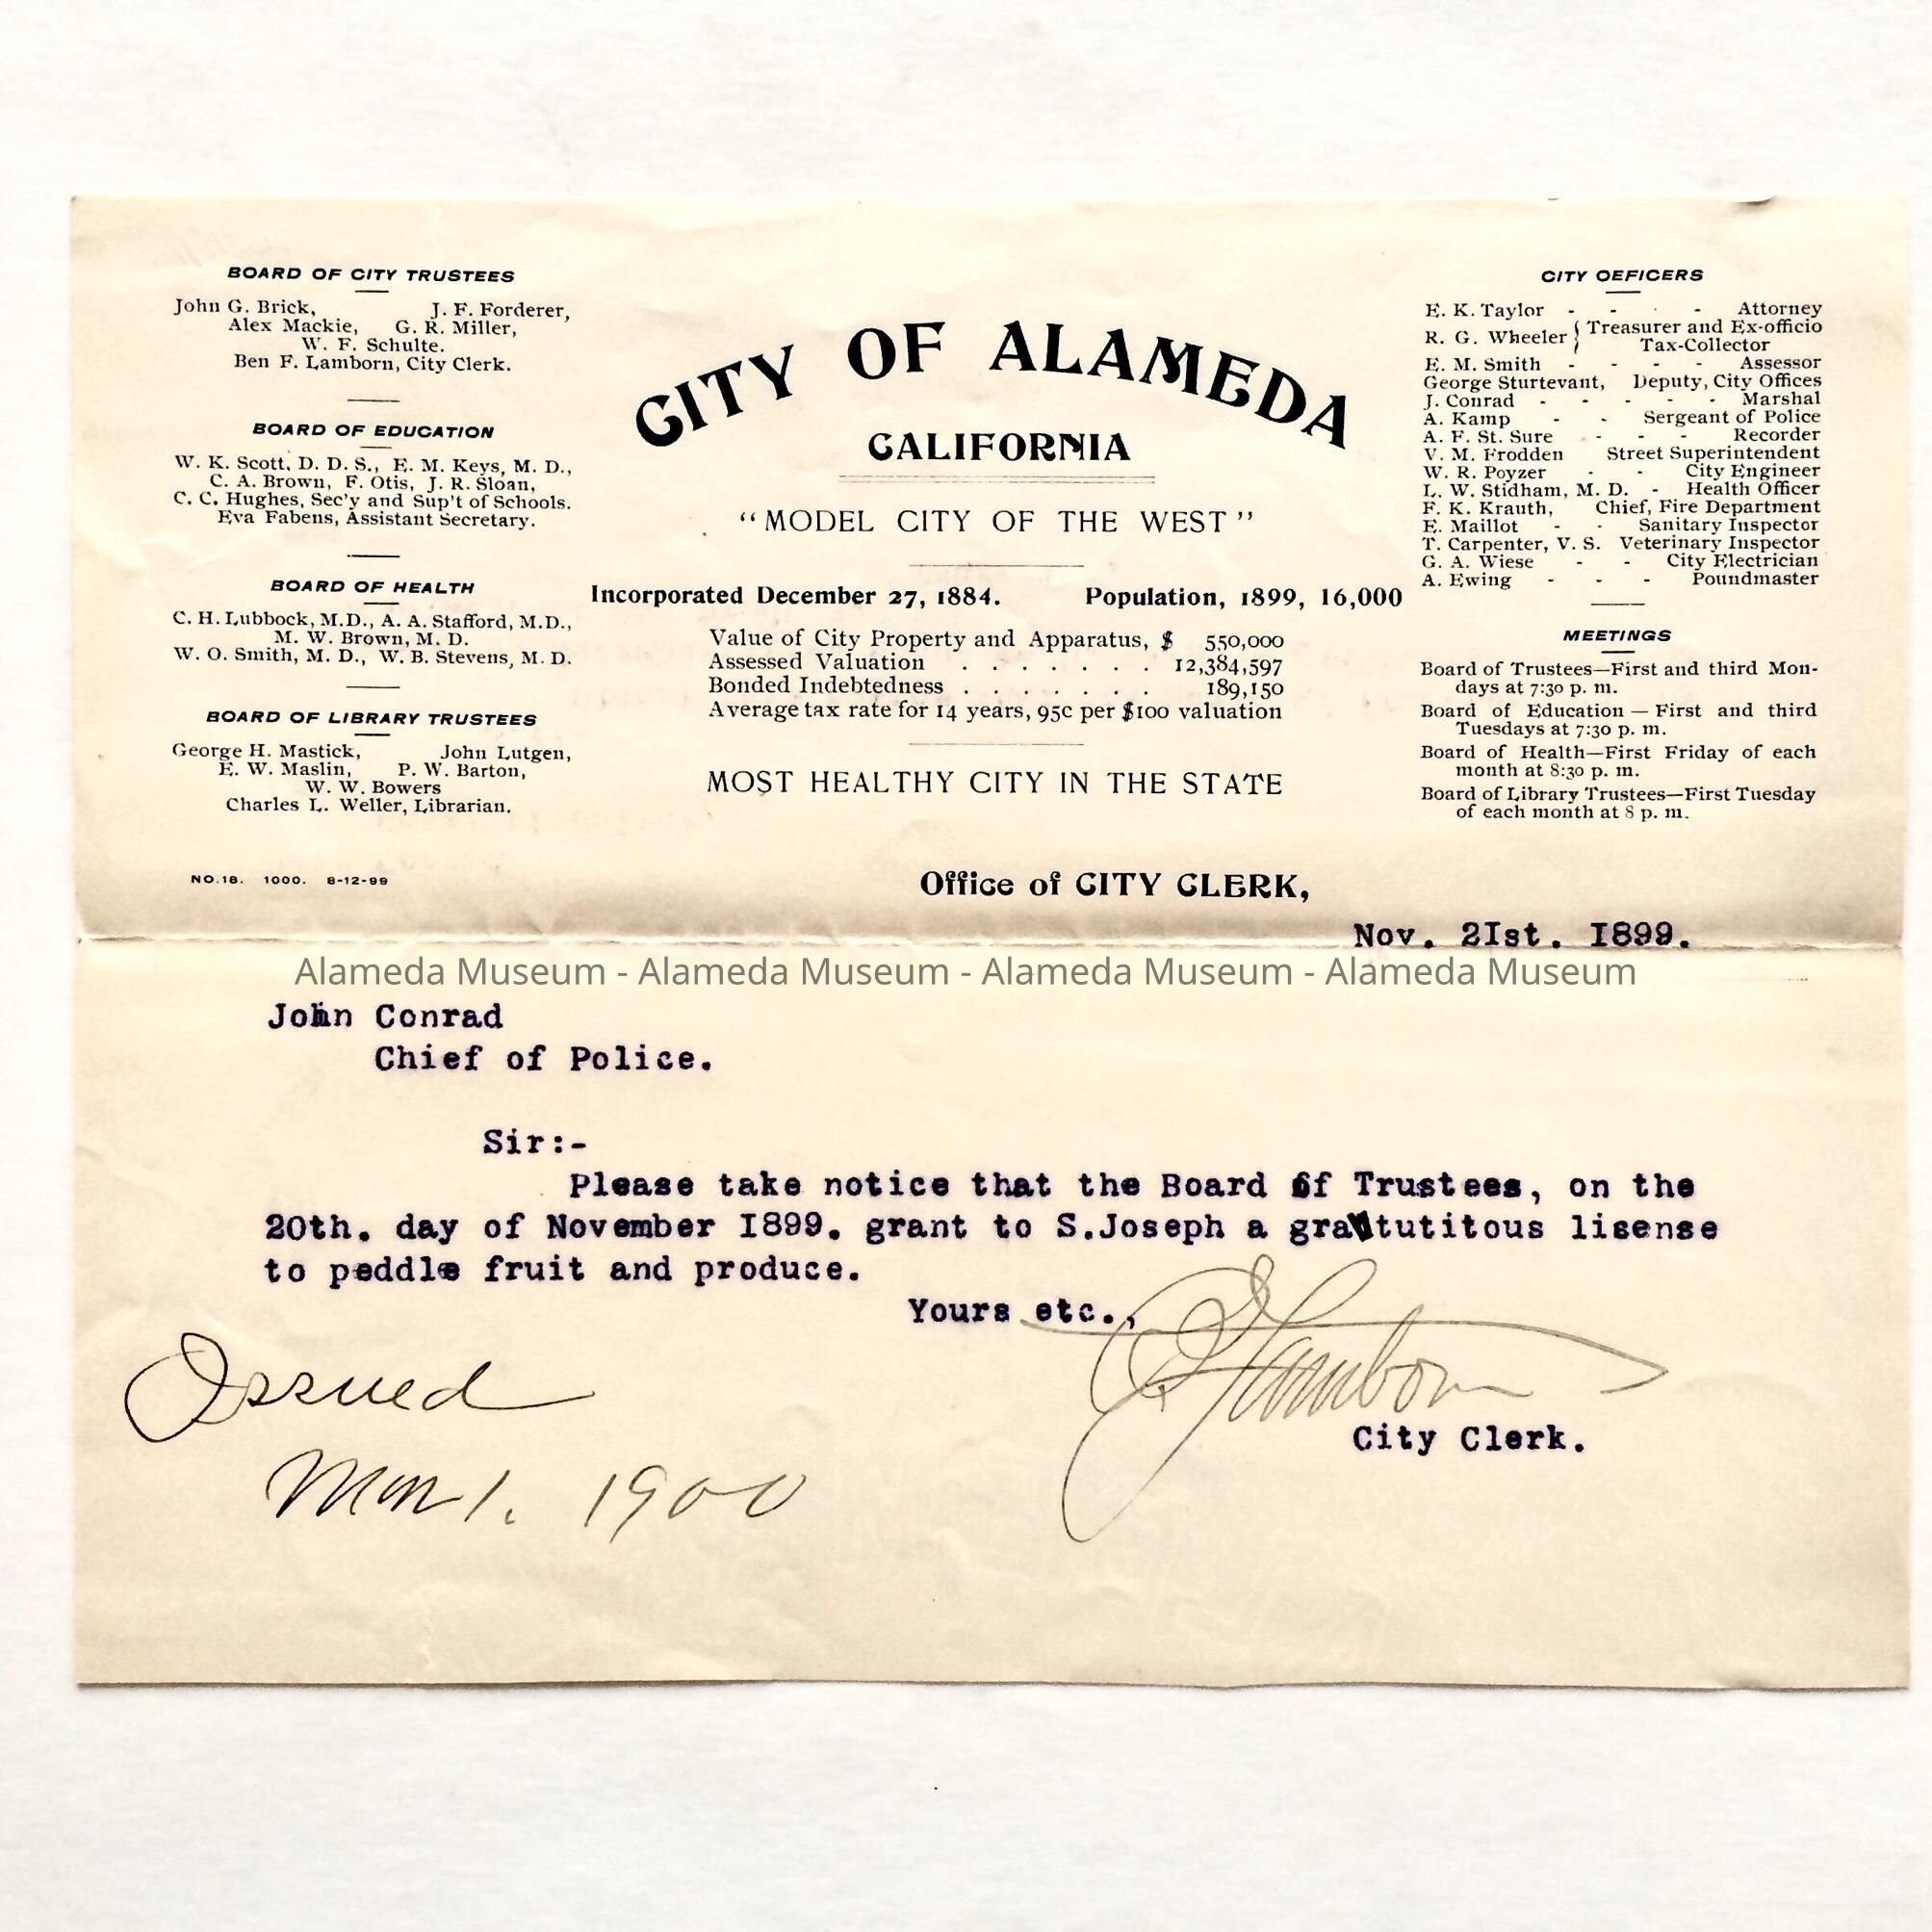 BOARD OF CITY TRUSTEES
John G. Brick, J. F. Forderer,
Alex Mackie, G. R. Miller,
W. F. Schulte.
Ben F. Lamborn, City Clerk.
BOARD OF EDUCATION
W. K. Scott, D. D. S., E. M. Keys, M. D.,
C. A. Brown, F. Otis, J. R. Sloan,
C. C. Hughes, Sec'y and Sup't of Schools.
Eva Fabens, Assistant Secretary.
BOARD OF HEALTH
C. H. Lubbock, M.D., A. A. Stafford, M.D.,
M. W. Brown, M. D.
W. O. Smith, M. D., W. B. Stevens, M. D.
BOARD OF LIBRARY TRUSTEES
George H. Mastick, John Lutgen,
E. W. Maslin, P. W. Barton,
W. W. Bowers
Charles L. Weller, Librarian.
NO.18. 1000. 8-12-99
CITY OF ALAMEDA
CALIFORNIA
"MODEL CITY OF THE WEST"
Incorporated December 27, 1884. Population, 1899, 16,000
Value of City Property and Apparatus, $ 550,000
Assessed Valuation . . . . . . . 12,384,597
Bonded Indebtedness . . . . . . . 189,150
Average tax rate for 14 years, 95c per $100 valuation
MOST HEALTHY CITY IN THE STATE
CITY OEFICERS
E. K. Taylor - - - Attorney
R. G. Wheeler { Treasurer and Ex-officio
Tax-Collector
E. M. Smith - - - - Assessor
George Sturtevant, Deputy, City Offices
J. Conrad - - - - - Marshal
A. Kamp - - Sergeant of Police
A. F. St. Sure - - - Recorder
V. M. Frodden Street Superintendent
W. R. Poyzer - - City Engineer
L. W. Stidham, M. D. - Health Officer
F. K. Krauth, Chief, Fire Department
E. Maillot - - Sanitary Inspector
T. Carpenter, V. S. Veterinary Inspector
G. A. Wiese - - City Electrician
A. Ewing - - - Poundmaster
MEETINGS
Board of Trustees—First and third Mon-
days at 7:30 p. m.
Board of Education — First and third
Tuesdays at 7:30 p. m.
Board of Health—First Friday of each
month at 8:30 p. m.
Board of Library Trustees—First Tuesday
of each month at 8 p. m.
Office of CITY CLERK,
Nov. 2Ist. I899.
Alameda Museum - Alameda Museum - Alameda Museum - Alameda Museum
John Conrad
Chief of Police.
Sir:-
Please take notice that the Board of Trustees, on the
20th. day of November I899. grant to S.Joseph a gratutitous lisense
to peddle fruit and produce.
Yours etc.,
Lamborn
City Clerk.
Issued
Mar 1. 1900